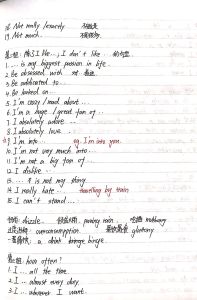 18. Not really / exactly 不确定
19. Not much... 不确切
第一组: 除了 I like..., I don't like... 的句型
1. ... is my biggest passion in life.
2. Be obsessed with 对...着迷
3. Be addicted to...
4. Be hooked on...
5. I'm crazy / mad about...
6. I'm a huge / great fan of...
7. I absolutely adore...
8. I absolutely love...
9. I'm into... eg. I'm into you.
10. I'm not very much into...
11. I'm not a big fan of...
12. I dislike...
13. ... is not my thing.
14. I really hate... travelling by train
15. I can't stand...
drizzle. pouring rain
overconsumption. gluttony
a drink binge binge
第二组: how often?
1. I... all the time.
2. I... almost every day.
3. I... whenever I want.